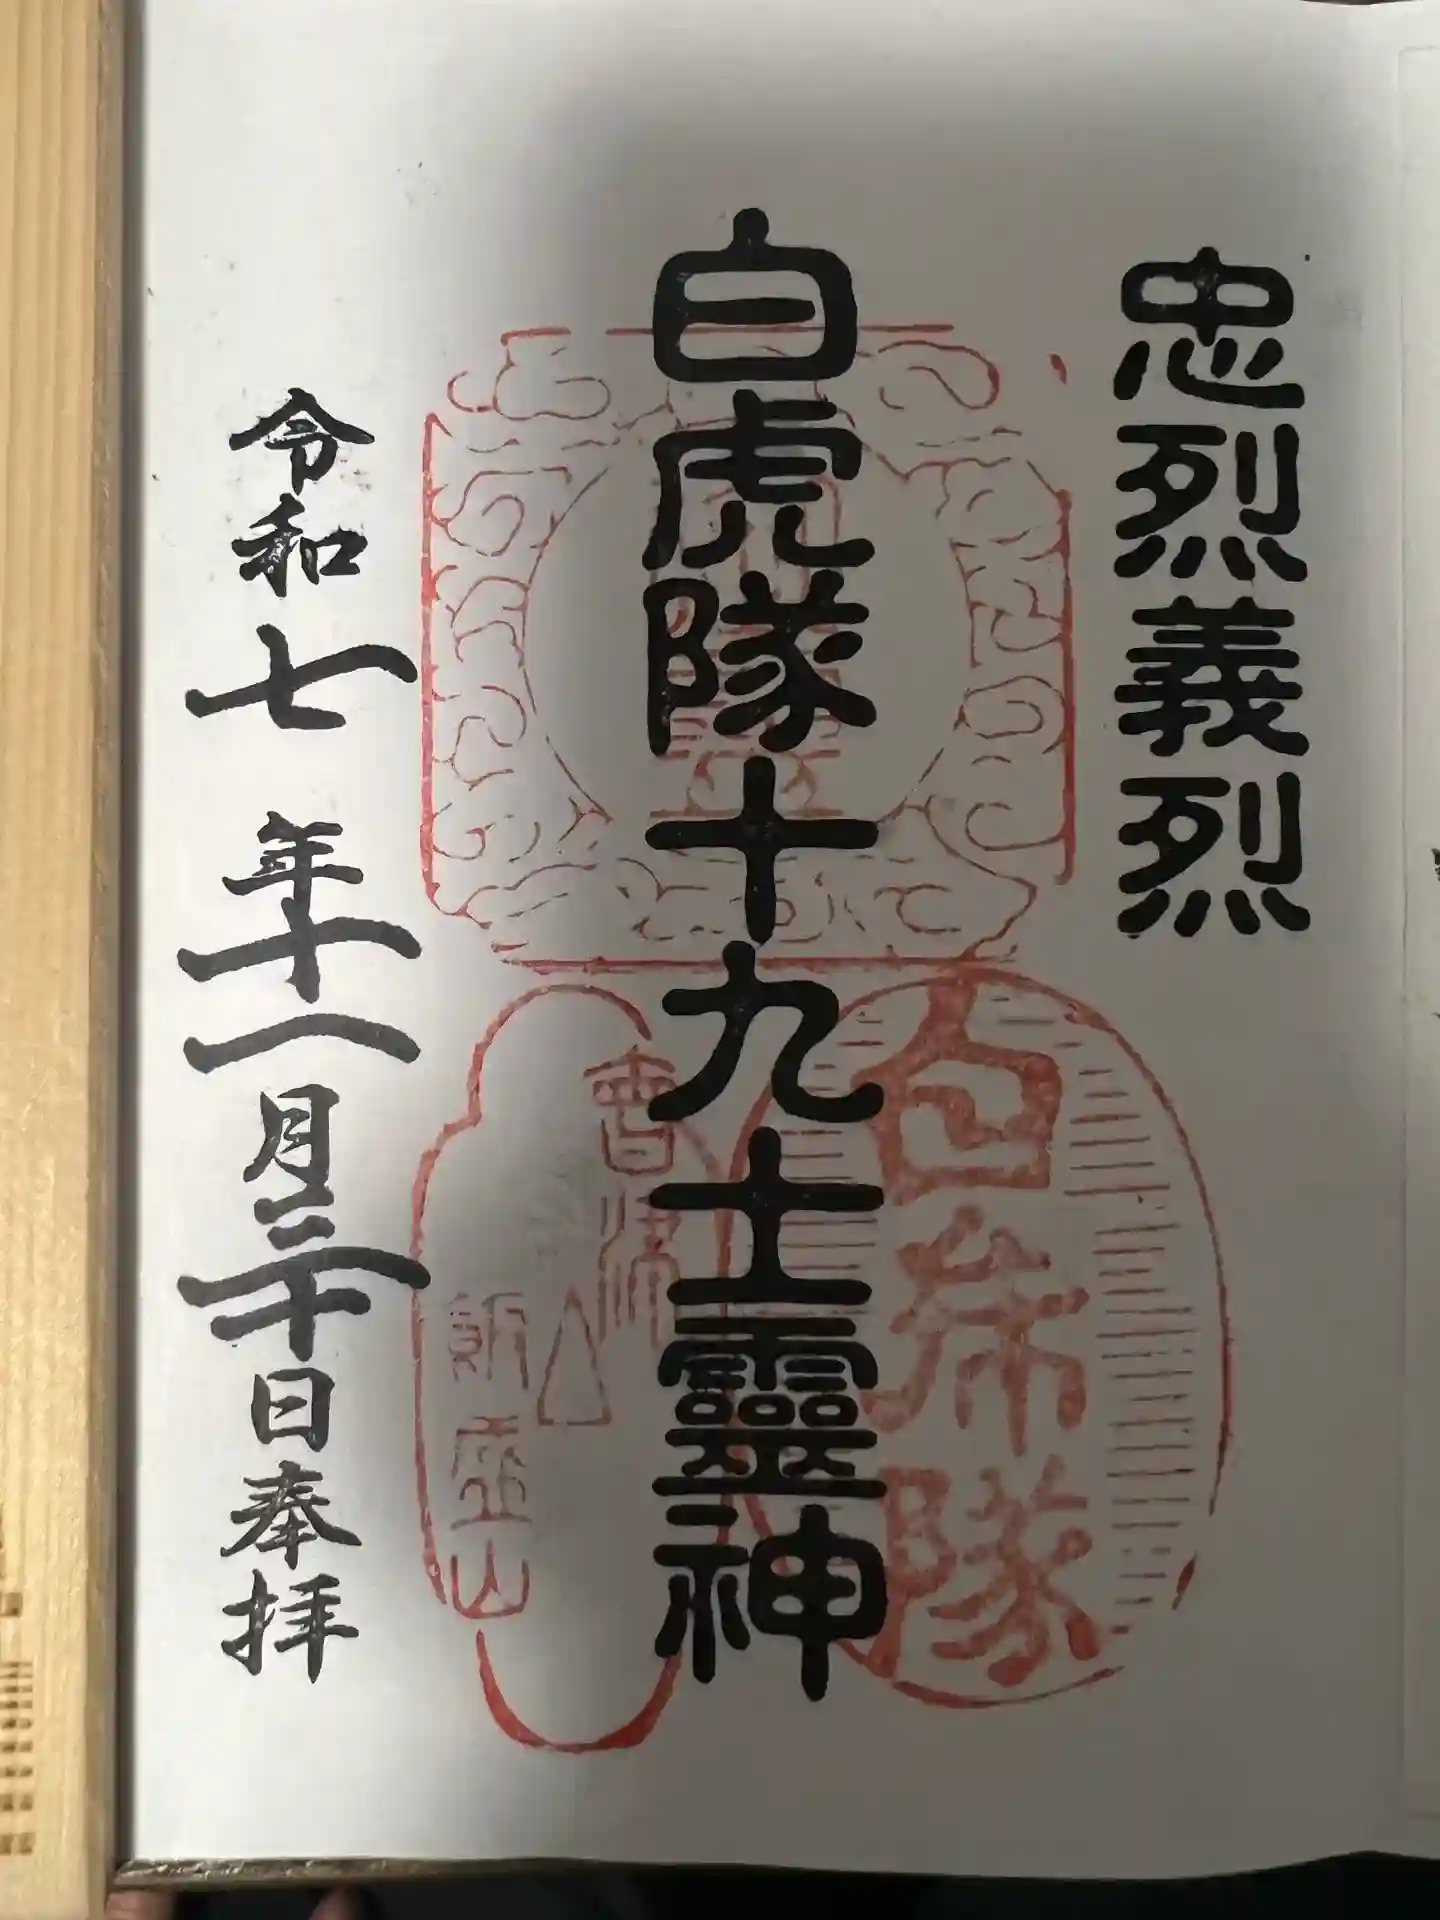 忠烈義烈
白虎隊十九士靈神
令和七年十一月三十日奉拝
白虎隊
會津
飯盛山